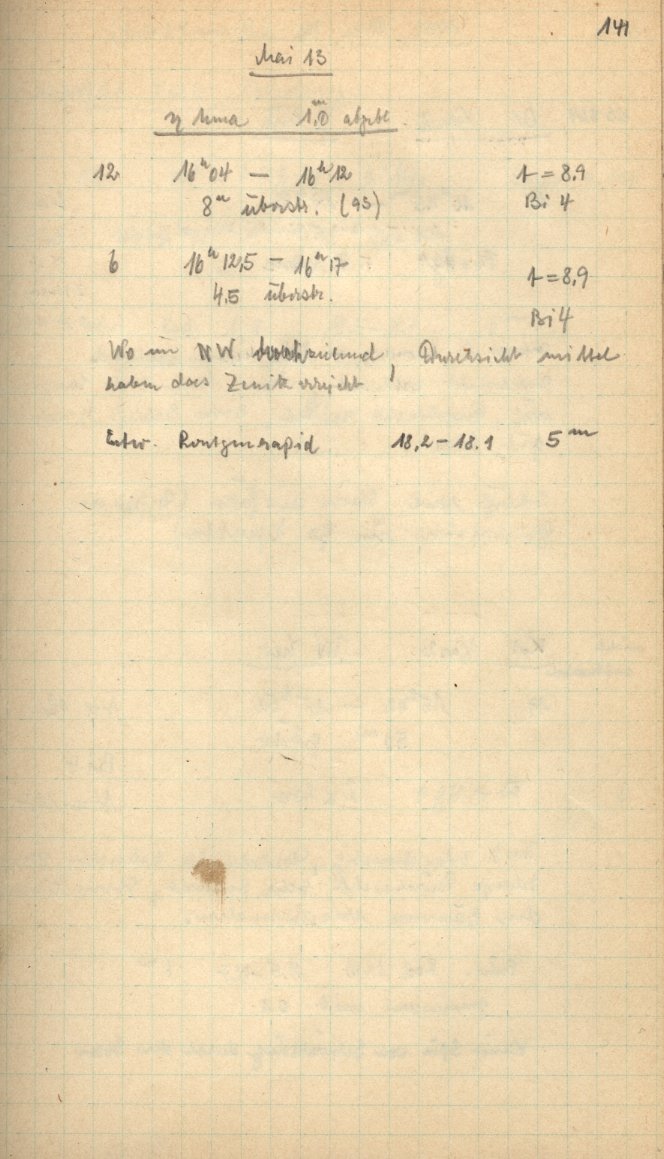 141
Mai 13
η Uma 1,0ᵐ abgebl.
12 16ʰ04 — 16ʰ12 t = 8.9
8ᵐ überstr. (93) Bi 4
6 16ʰ12,5 — 16ʰ17 t = 8,9
4,5 überstr.
Bi 4
Wo im NW durchziehend, Durchsicht mittel
haben das Zenit erreicht
Entw. Rontgenrapid 18,2 — 18.1 5ᵐ